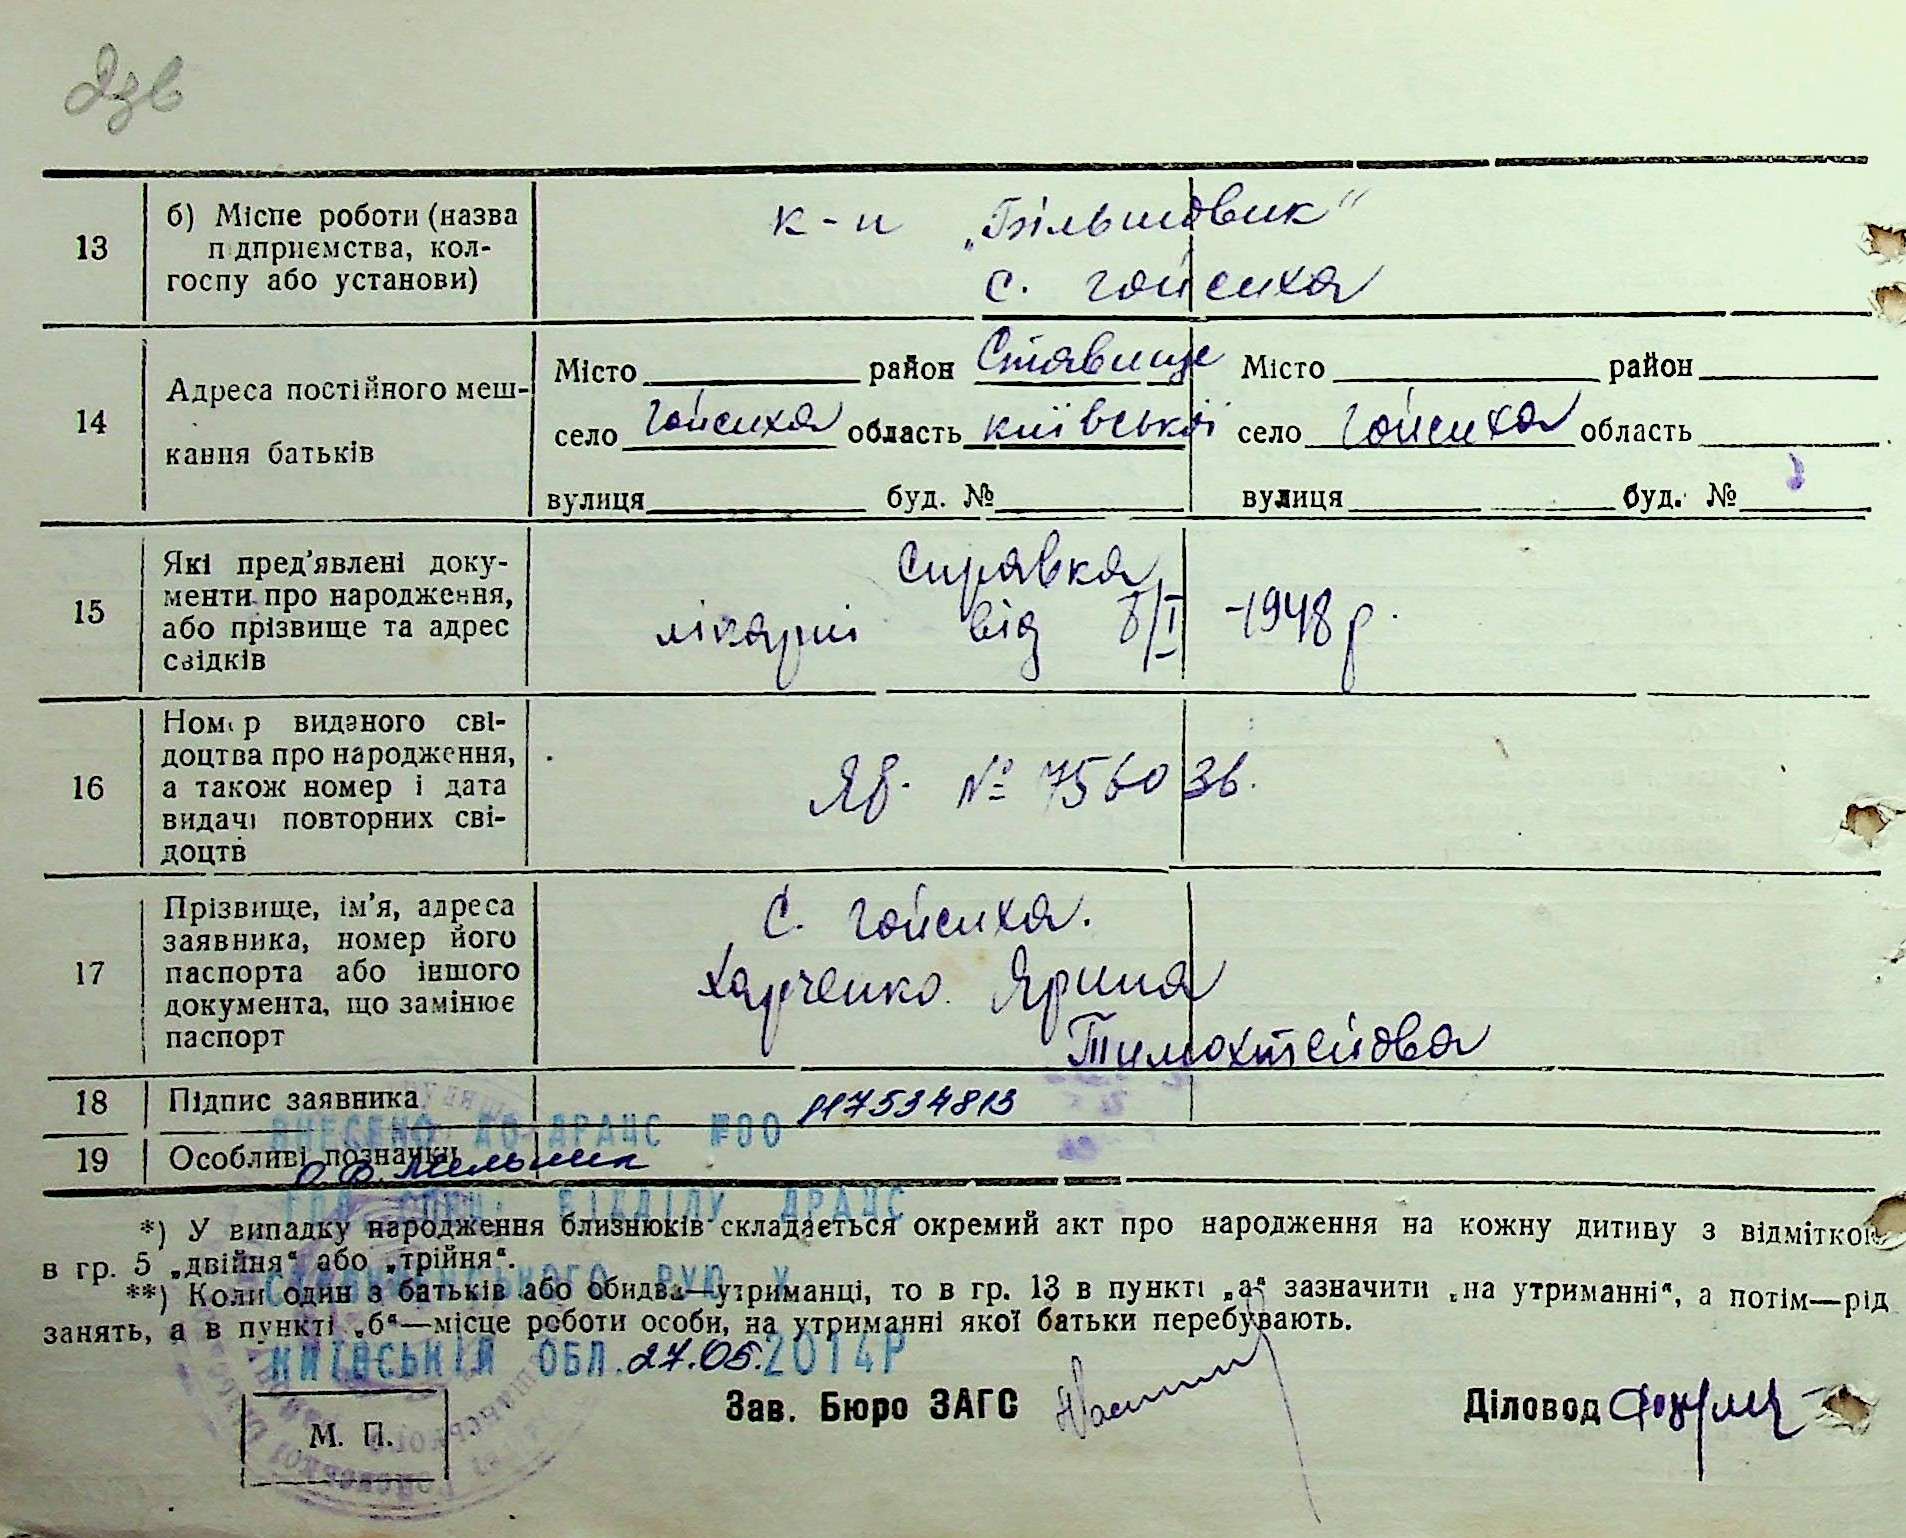 2зв
13 б) Місце роботи (назва підприємства, колгоспу або установи)
к-п „Більшовик“
с. Гойсиха
14 Адреса постійного мешкання батьків
Місто район Ставище Місто район
село Гойсиха область київської село Гойсиха область
вулиця буд. № вулиця буд. №
15 Які пред'явлені документи про народження, або прізвище та адрес свідків
Справка
лікарні від 8/I-1948 р.
16 Номер виданого свідоцтва про народження, а також номер і дата видачі повторних свідоцтв
ЯВ. № 756036.
17 Прізвище, ім'я, адреса заявника, номер його паспорта або іншого документа, що замінює паспорт
С. Гойсиха.
Харченко Ярина
Тимохтейова
18 Підпис заявника
117534813
ВНЕСЕНО ДО ДРАЦС №00
19 Особливі позначки
О.Ф. Мельник
ГОЛ. СПЕЦ. ВІДДІЛУ ДРАЦС
*) У випадку народження близнюків складається окремий акт про народження на кожну дитину з відміткою
в гр. 5 „двійня“ або „трійня“.
СТАВИЩЕНСЬКОГО РУЮ У
**) Коли один з батьків або обидва—утриманці, то в гр. 13 в пункті „а“ зазначити „на утриманні“, а потім—рід
занять, а в пункті „б“—місце роботи особи, на утриманні якої батьки перебувають.
КИЇВСЬКІЙ ОБЛ. 27.05.2014Р
Зав. Бюро ЗАГС Діловод
М. П.